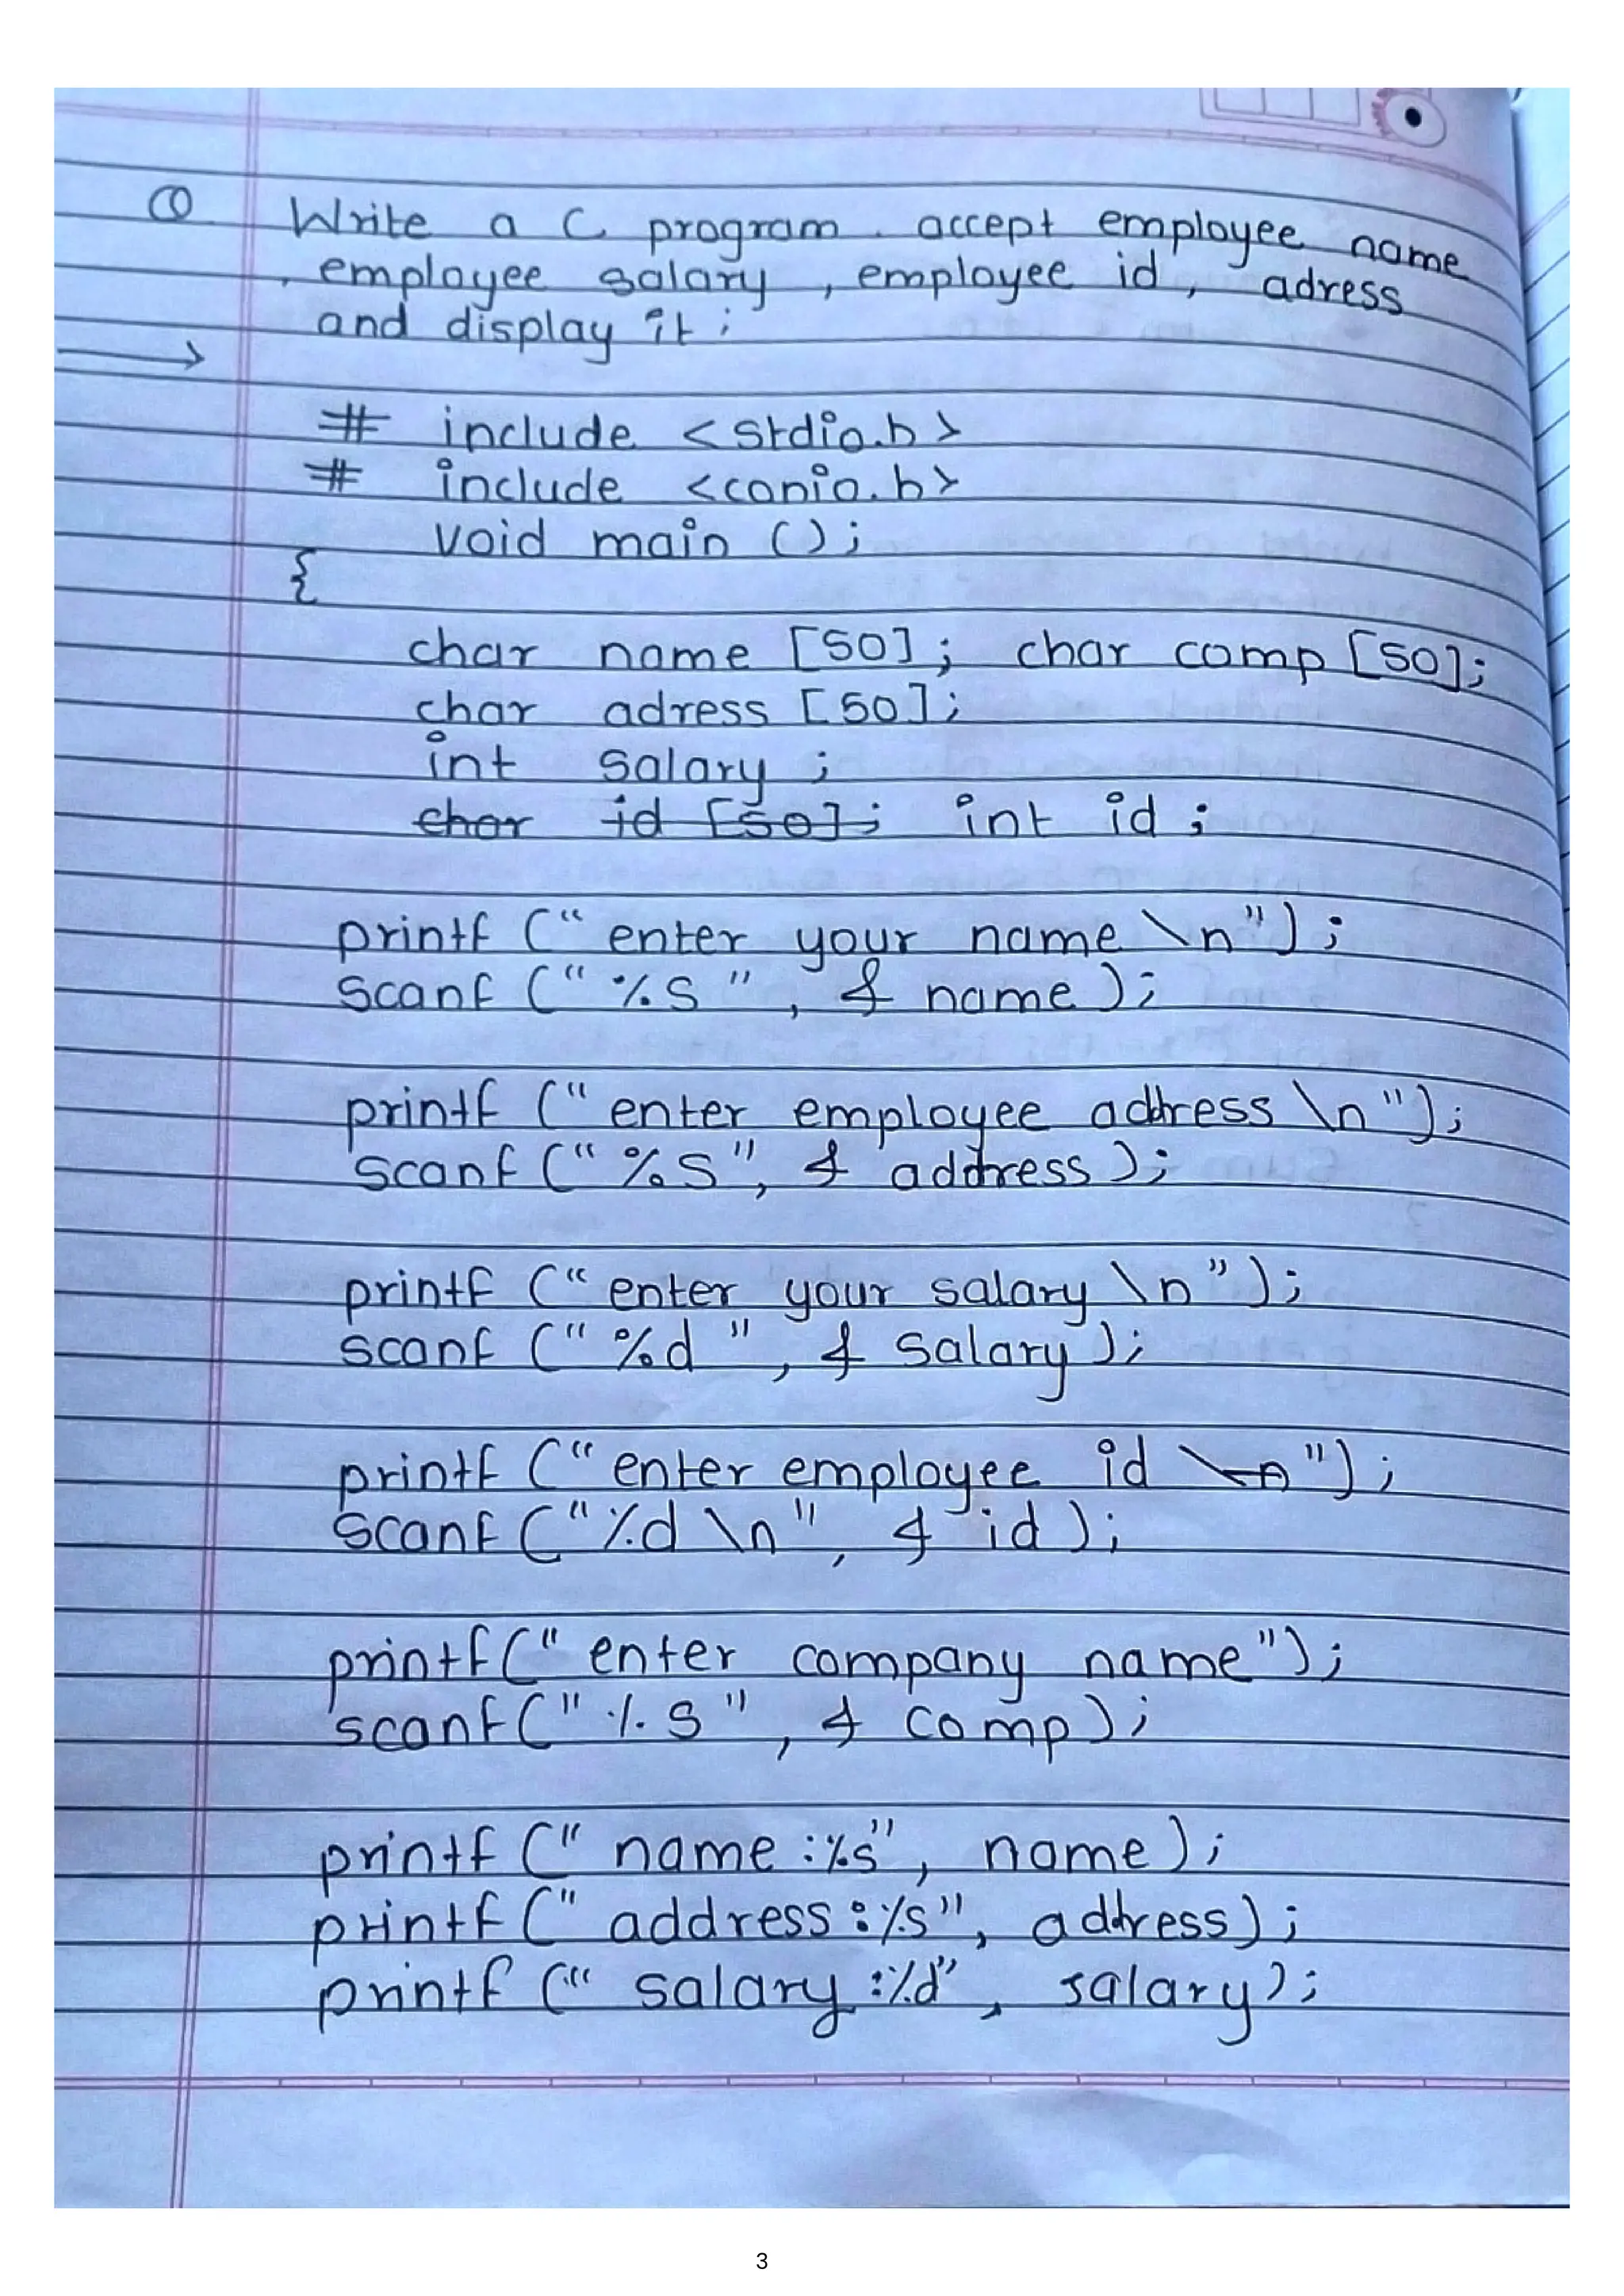 Q Write a C program. accept employee name
, employee salary, employee id, adress
and display it;
→
# include <stdio.h>
# include <conio.h>
void main ();
{
char name [50]; char comp [50];
char adress [50];
int salary ;
char id [50]; int id ;
printf (" enter your name \n");
scanf (" %s ", & name );
printf (" enter employee address \n");
scanf (" %s", & address );
printf (" enter your salary \n");
scanf (" %d ", & salary );
printf (" enter employee id \n");
scanf ("%d \n", & id );
printf (" enter company name");
scanf (" %s ", & comp );
printf (" name :%s", name );
printf (" address :%s", address);
printf (" salary :%d", salary);
3